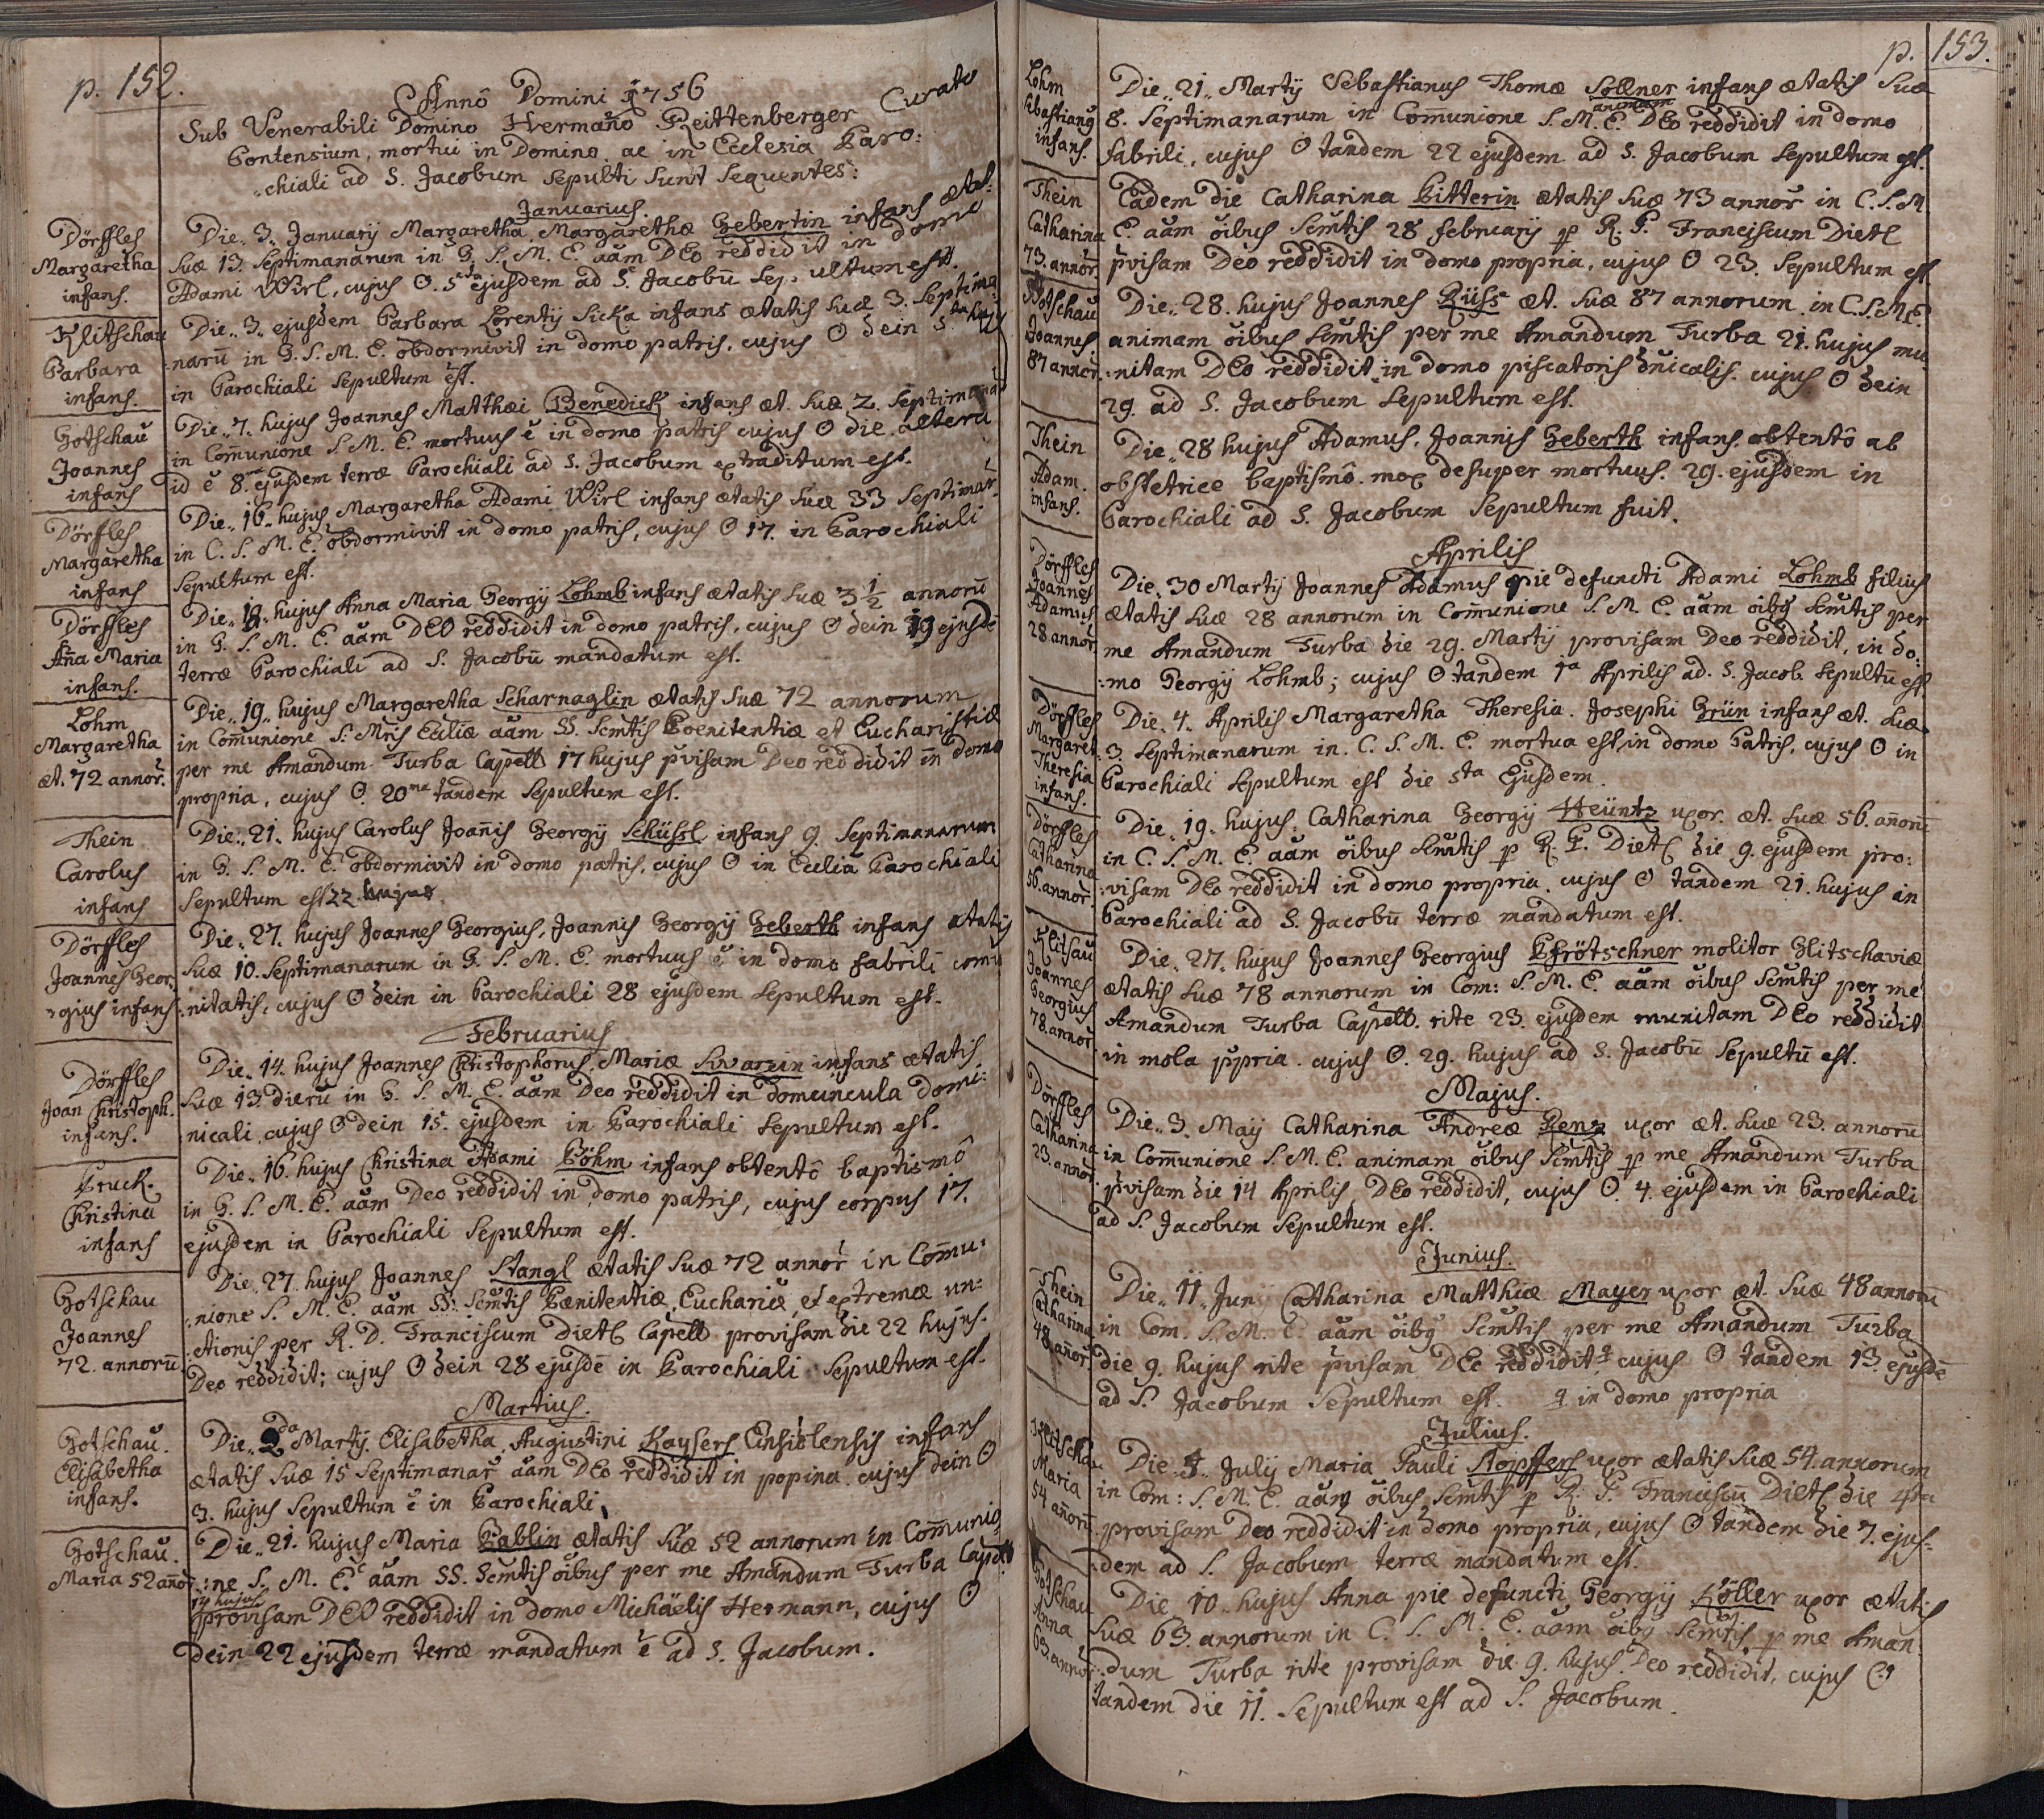 p. 152.
Annô Domini 1756
Sub Venerabili Domino Hermaño Reittenberger Curato
Pontensium, mortui in Domino ac in Ecclesia Paro:
chiali ad S. Jacobum Sepulti Sunt Sequentes:
Januarius.
Dörffles
Margaretha
infans.
Die 3. Januarij Margaretha Margarethæ Gebertin infans ætat:
suæ 13. Septimanarum in G. S. M. E. aãm DEo reddidit in domo
Adami Wirl, cujus O. 5ta ejusdem ad S. Jacobũ Sepultum est.
Klitschau
Barbara
infans.
Die 3. ejusdem Barbara Lorentij Sicka infans ætatis suæ 3. Septima
narũ in G. S. M. E. obdormivit in domo patris, cujus O dein 5ta huj9
in Parochiali Sepultum est.
Gotschau
Joannes
infans
Die 7. hujus Joannes Matthæi Benedick infans æt. suæ 2. Septimanar
in Com̃unione S. M. E. mortuus ẽ in domo patris cujus O die altera
id ẽ 8va ejusdem terræ Parochiali ad S. Jacobum extraditum est.
Dörffles
Margaretha
infans
Die 16. hujus Margaretha Adami Wirl infans ætatis suæ 33 Septimar.
in C. S. M. E. obdormivit in domo patris, cujus O 17. in Parochiali
Sepultum est.
Dörffles
Añna Maria
infans.
Die 18. hujus Anna Maria Georgij Lohmb infans ætatis suæ 3 1/2 annorũ
in G. S. M. E. aãm DEO reddidit in domo patris, cujus O dein 19 ejusdẽ
terræ Parochiali ad S. Jacobũ mandatum est.
Lohm
Margaretha
æt. 72 annor.
Die 19. hujus Margaretha Scharnaglin ætatis suæ 72 annorum
in Com̃unione S. Mris Ecliæ aãm SS. Scm̃tis Poenitentiæ et Eucharistiæ
per me Amandum Turba Capell 17 hujus pvisam Deo reddidit in domo
propria, cujus O. 20ma tandem Sepultum est.
Thein
Carolus
infans
Die 21. hujus Carolus Joañis Georgij Schüssl infans 9. Septimanarum
in G. S. M. E. obdormivit in domo patris, cujus O in Ecclia Parochiali
Sepultum est 22 hujus.
Dörffles
Joannes Geor:
gius infans
Die 27. hujus Joannes Georgius, Joannis Georgij Geberth infans ætatis
suæ 10. Septimanarum in G. S. M. E. mortuus ẽ in domo fabrili comu
nitatis, cujus O dein in Parochiali 28 ejusdem Sepultum est.
Februarius
Dörffles
Joan Christoph.
infans.
Die 14. hujus Joannes Christophorus, Mariæ Swarzin infans ætatis
suæ 13. dierũ in G. S. M. E. aãm Deo reddidit in domuncula domi:
nicali, cujus O dein 15. ejusdem in Parochiali Sepultum est.
Pruck.
Christina
infans
Die 16. hujus Christina Adami Böhm infans obtentô baptismô
in G. S. M. E. aãm Deo reddidit in domo patris, cujus corpus 17.
ejusdem in Parochiali Sepultum est.
Gotschau
Joannes
72. annorũ
Die 27. hujus Joannes Stangl ætatis suæ 72 annor in Com̃u:
nione S. M. E. aãm SS. Scm̃tis Pœnitentiæ, Euchariæ, et extremæ un:
ctionis per R. D. Franciscum Dietl Capell provisam die 22 hujus.
Deo reddidit; cujus O dein 28 ejusdẽ in Parochiali Sepultum est.
Martius.
Gotschau.
Elisabetha
infans.
Die 2da Martij. Elisabetha Augustini Kaysers Einsidlensis infans
ætatis suæ 15 Septimanar aãm DEo reddidit in popina cujus dein O
3. hujus Sepultum ẽ in Parochiali.
Gotschau.
Maria 52 añor
Die 21. hujus Maria Bablin ætatis suæ 52 annorum in Com̃unio
ne S. M. E. aãm SS. Scm̃tis õibus per me Amandum Turba Capell
14 hujus
provisam DEO reddidit in domo Michäelis Hermann, cujus O
dein 22 ejusdem terræ mandatum ẽ ad S. Jacobum.
p. 153.
Lohm
Sebastianq
infans.
Die 21. Martij Sebastianus Thomæ Sollner infans ætatis suæ
animam
8. Septimanarum in Com̃unione S. M. E. DEo reddidit in domo
fabrili, cujus O tandem 22 ejusdem ad S. Jacobum Sepultum est.
Thein
Catharina
73. annor.
Eadem die Catharina Pitterin ætatis suæ 73 annor in C. S. M
E. aãm õibus Scm̃tis 28 februarij p R. P. Franciscum Dietl
pvisam Deo reddidit in domo propria, cujus O 23. Sepultum est
Gotschau
Joannes
87 annor.
Die 28. hujus Joannes Rüss æt. suæ 87 annorum in C. S. M. E.
animam õibus Scm̃tis per me Amandum Turba 21. hujus mu
nitam DEo reddidit in domo piscatoris dñicalis. cujus O dein
29. ad S. Jacobum Sepultum est.
Thein
Adam.
infans.
Die 28 hujus Adamus, Joannis Geberth infans obtentô ab
obstetrice baptismô mox desuper mortuus. 29. ejusdem in
Parochiali ad S. Jacobum Sepultum fuit.
Aprilis
Dörffles
Joannes
Adamus
28 annor.
Die 30 Martij Joannes Adamus pie defuncti Adami Lohmb filius
ætatis suæ 28 annorum in Com̃unione S. M. E. aãm õibq Scm̃tis per
me Amandum Turba die 29. Martij provisam Deo reddidit, in do:
mo Georgij Lohmb; cujus O tandem 1a Aprilis ad. S. Jacob. Sepultũ est
Dörffles
Margaret
Theresia
infans.
Die 4. Aprilis Margaretha Theresia. Josephi Grün infans æt. suæ
3. Septimanarum in. C. S. M. E. mortua est, in domo Patris, cujus O in
Parochiali Sepultum est die 5ta Ejusdem.
Dörffles
Catharina
56. annor.
Die 19. hujus Catharina Georgij Heüntz uxor. æt. suæ 56. añorũ
in C. S. M. E. aãm õibus Scm̃tis p R. P. Dietl die 9. ejusdem pro:
visam DEo reddidit in domo propria. cujus O tandem 21. hujus in
Parochiali ad S. Jacobũ terræ mandatum est.
Klitsau
Joannes
Georgius
78. annor
Die 27. hujus Joannes Georgius Pfrötschner molitor Glitschaviæ
ætatis suæ 78 annorum in Com: S. M. E. aãm õibus Scm̃tis per me
Amandum Turba Capell. rite 23. ejusdem munitam DEo reddidit
in mola ppria. cujus O. 29. hujus ad S. Jacobũ Sepultũ est.
Majus.
Dörffles
Catharina
23. annor.
Die 3. Maij Catharina Andreæ Renz uxor æt. suæ 23. annorũ
in Com̃unione S. M. E. animam õibus Scm̃tis p me Amandum Turba
pvisam die 14 Aprilis DEo reddidit, cujus O. 4. ejusdem in Parochiali
ad S. Jacobum Sepultum est.
Junius.
Thein
Catharina
48 añor.
Die 11. Junij Catharina Matthiæ Mayer uxor æt. suæ 48 annorũ
in Com. S. M. E. aãm õibq Scm̃tis per me Amandum Turba
die 9. hujus rite pvisam DEo reddidit cujus O tandem 13. ejusdẽ
ad S. Jacobum Sepultum est. in domo propria
Julius.
Klitschau
Maria
54 añorũ
Die 5. Julij Maria Pauli Stopffers uxor ætatis suæ 54. annorum
in Com: S. M. E. aãm õibus Scm̃tis p R. P. Franciscũ Dietl die 4ta
provisam Deo reddidit in domo propria, cujus O tandem die 7. ejus:
dem ad S. Jacobum terræ mandatum est.
Gotschau
Anna
63. annor
Die 10. hujus Anna pie defuncti Georgij Köller uxor ætatis
suæ 63. annorum in C. S. M. E. aãm õibq Scm̃tis p me Aman:
dum Turba rite provisam die 9. hujus Deo reddidit, cujus O
tandem die 11. Sepultum est ad S. Jacobum.